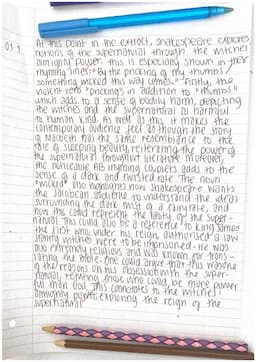 01 1
At this point in the extract, Shakespeare explores
notions of the supernatural through the witches
almighty power. This is especially shown in their
rhyming lines: "By the pricking of my thumbs /
something wicked this way comes." Firstly, the
violent verb "pricking" in addition to "thumbs"
which adds to a sense of bodily harm, depicting
the witches and the supernatural as harmful
to human kind. As well as this, it makes the
contemporary audience feel as though the story
of Macbeth has the same resemblance to the
tale of sleeping beauty, reiterating the power of
the supernatural throughout literature. Moreover,
the noticeable AB rhyming couplets adds to the
sense of a dark and twisted tale. The noun
"wicked" also highlights how Shakespeare wants
the Jacobean audience to understand the ideas
surrounding the dark must of a fairytale, and
how this could represent the reality of the super-
natural. This could also be a reference to King James
the first who, under his reign, authorised a law
stating witches were to be imprisoned. He was
also extremely religious and was known for trans-
lating the Bible. One could argue that this was one
of the reasons on his obsession with the super-
natural, fearing those who could be more power
ful than God. This connotes to the witches'
almighty power, exploring the reign of the
supernatural.